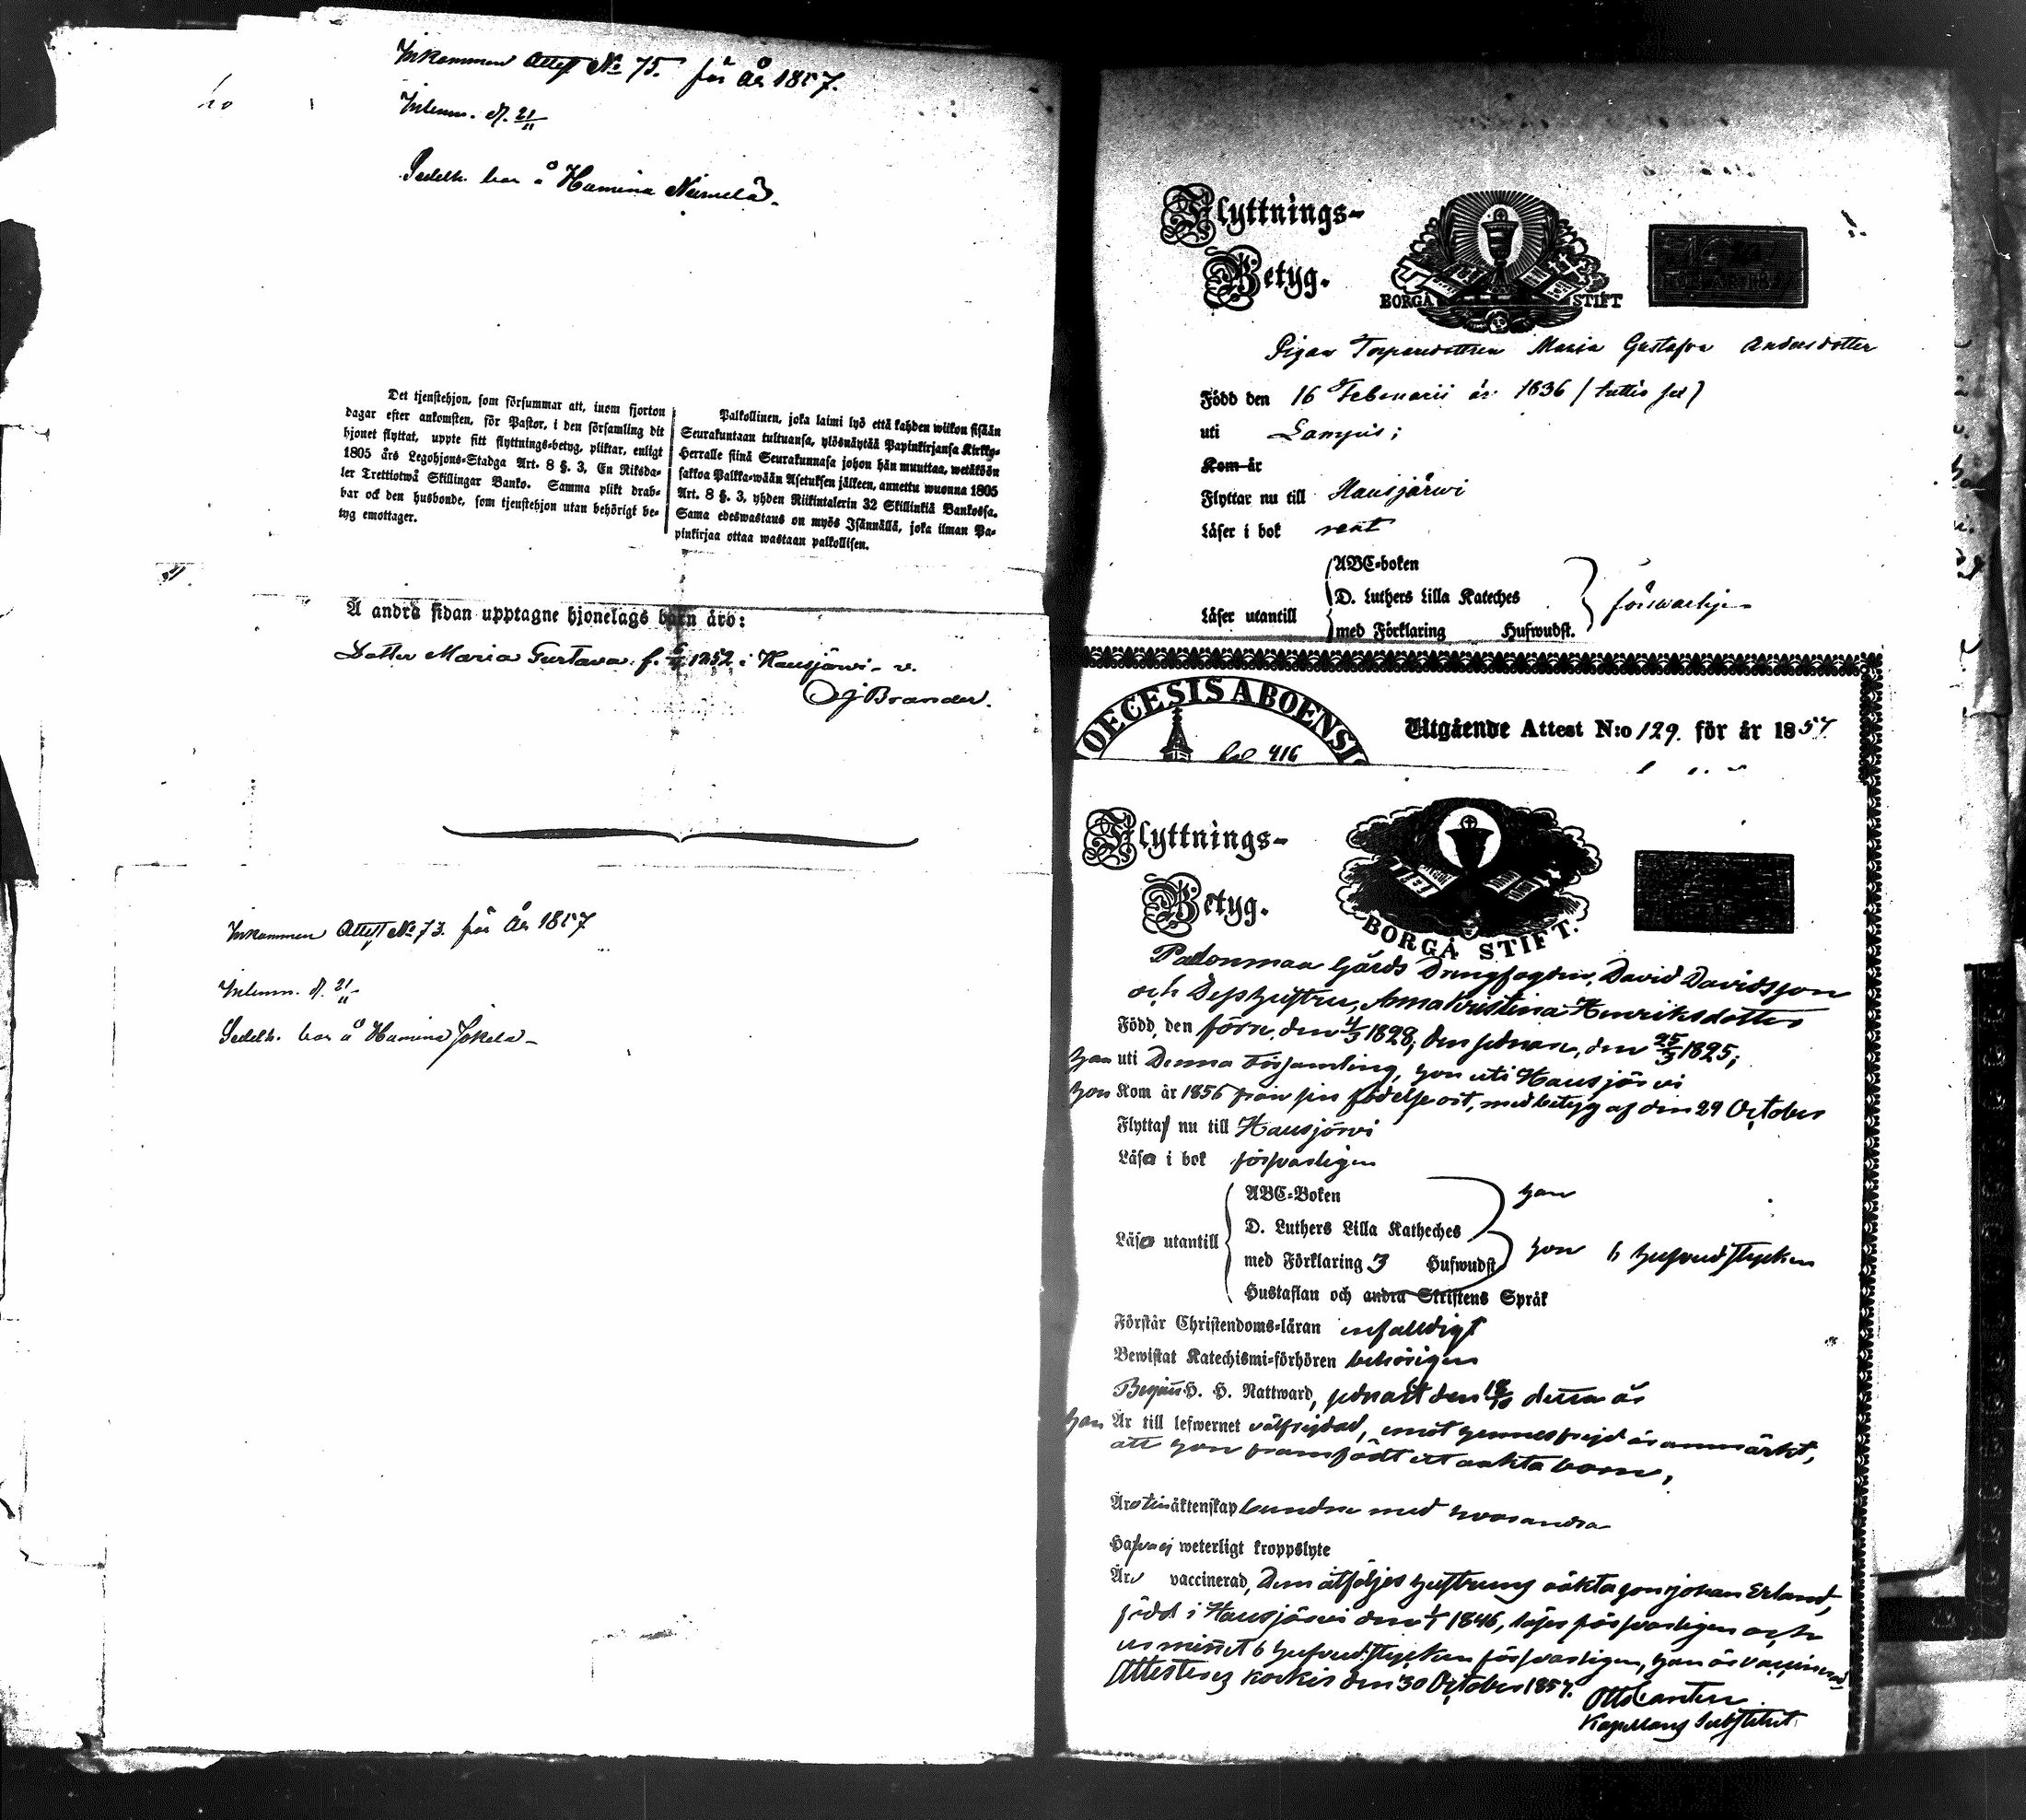 Inkommen Attest No 75. för år 1857.
Inlemn. d. 21/11
Sedelh. bor å Hamina Niemelä.
Det tjenstehjon, som försummar att, inom fjorton
dagar efter ankomsten, för Pastor, i den församling dit
hjonet flyttat, uppte sitt flyttnings-betyg, pliktar, enligt
1805 års Legohjons-Stadga Art. 8 §. 3, En Riksda-
ler Trettiotwå Skillingar Banko. Samma plikt drab-
bar ock den husbonde, som tjenstehjon utan behörigt be-
tyg emottager.
Palkollinen, joka laimi lyö että kahden wiikon sisään
Seurakuntaan tultuansa, ylösnäytää Papinkirjansa Kirkko-
Herralle siinä Seurakunnasa johon hän muuttaa, wetäköön
sakkoa Palkka-wään Asetuksen jälkeen, annettu wuonna 1805
Art. 8 §. 3, yhden Riikintalerin 32 Skillinkiä Bankossa.
Sama edeswastaus on myös Isännällä, joka ilman Pa-
pinkirjaa ottaa wastaan palkollisen.
Å andra sidan upptagne hjonelags barn äro:
Dotter Maria Gustava f. 1852 i Hausjärvi - v.
Brander.
Inkommen Attest No 73. för År 1857
Inlemn. d. 21/11
Sedelh. bor å Hamina Jokela
Flyttnings-
Betyg.
BORGÅ STIFT
Pigan Torparedottren Maria Gustafva Andersdotter
Född den 16 Februarii år 1836
uti Lampis;
Kom år
Flyttar nu till Hausjärwi
Läser i bok rent
ABC-boken
D. Luthers Lilla Kateches
Läser utantill
med Förklaring Hufwudst.
försvarligen
DIOECESIS ABOENSIS
fol 416
Utgående Attest N:o 129. för år 1857
Flyttnings-
Betyg.
BORGÅ STIFT.
Padonmaa Gårds Drengfogden, David Davidsson
och Dess hustru, Anna Kristina Henriksdotter
Född den förre, den 4/3 1828, den sednare, den 25/3 1825;
han uti Denna Församling, hon uti Hausjärvi
hon Kom år 1856 från sin födelseort, med betyg af den 29 October
Flytta nu till Hausjärvi
Läsa i bok försvarligen
ABC-Boken han
D. Luthers Lilla Katheches
Läsa utantill
med Förklaring 3 Hufwudst. hon 6 hufvudstycken
Hustaflan och andra Skriftens Språk
Förstår Christendoms-läran enfaldigt
Bewistat Katechismi-förhören behörigen
Begått H. H. Nattward, sednast den 18/10 detta år
han Är till lefwernet välfrejdad, emot hennes frejd är anmärkt,
att hon framfödt ett oäkta barn,
Äro till äktenskap bundne med hvarandra
Hafva ej weterligt kroppslyte
Äro vaccinerad, Dem åtföljer hustruns oäkta son Johan Erland,
född i Hausjärvi den 1846, läser försvarligen och
ur minnet 6 hufvudstycken försvarligen, han är vaccinerad
Attesterez Korkis den 30 October 1857.
Otto
Kapellans Substitut.